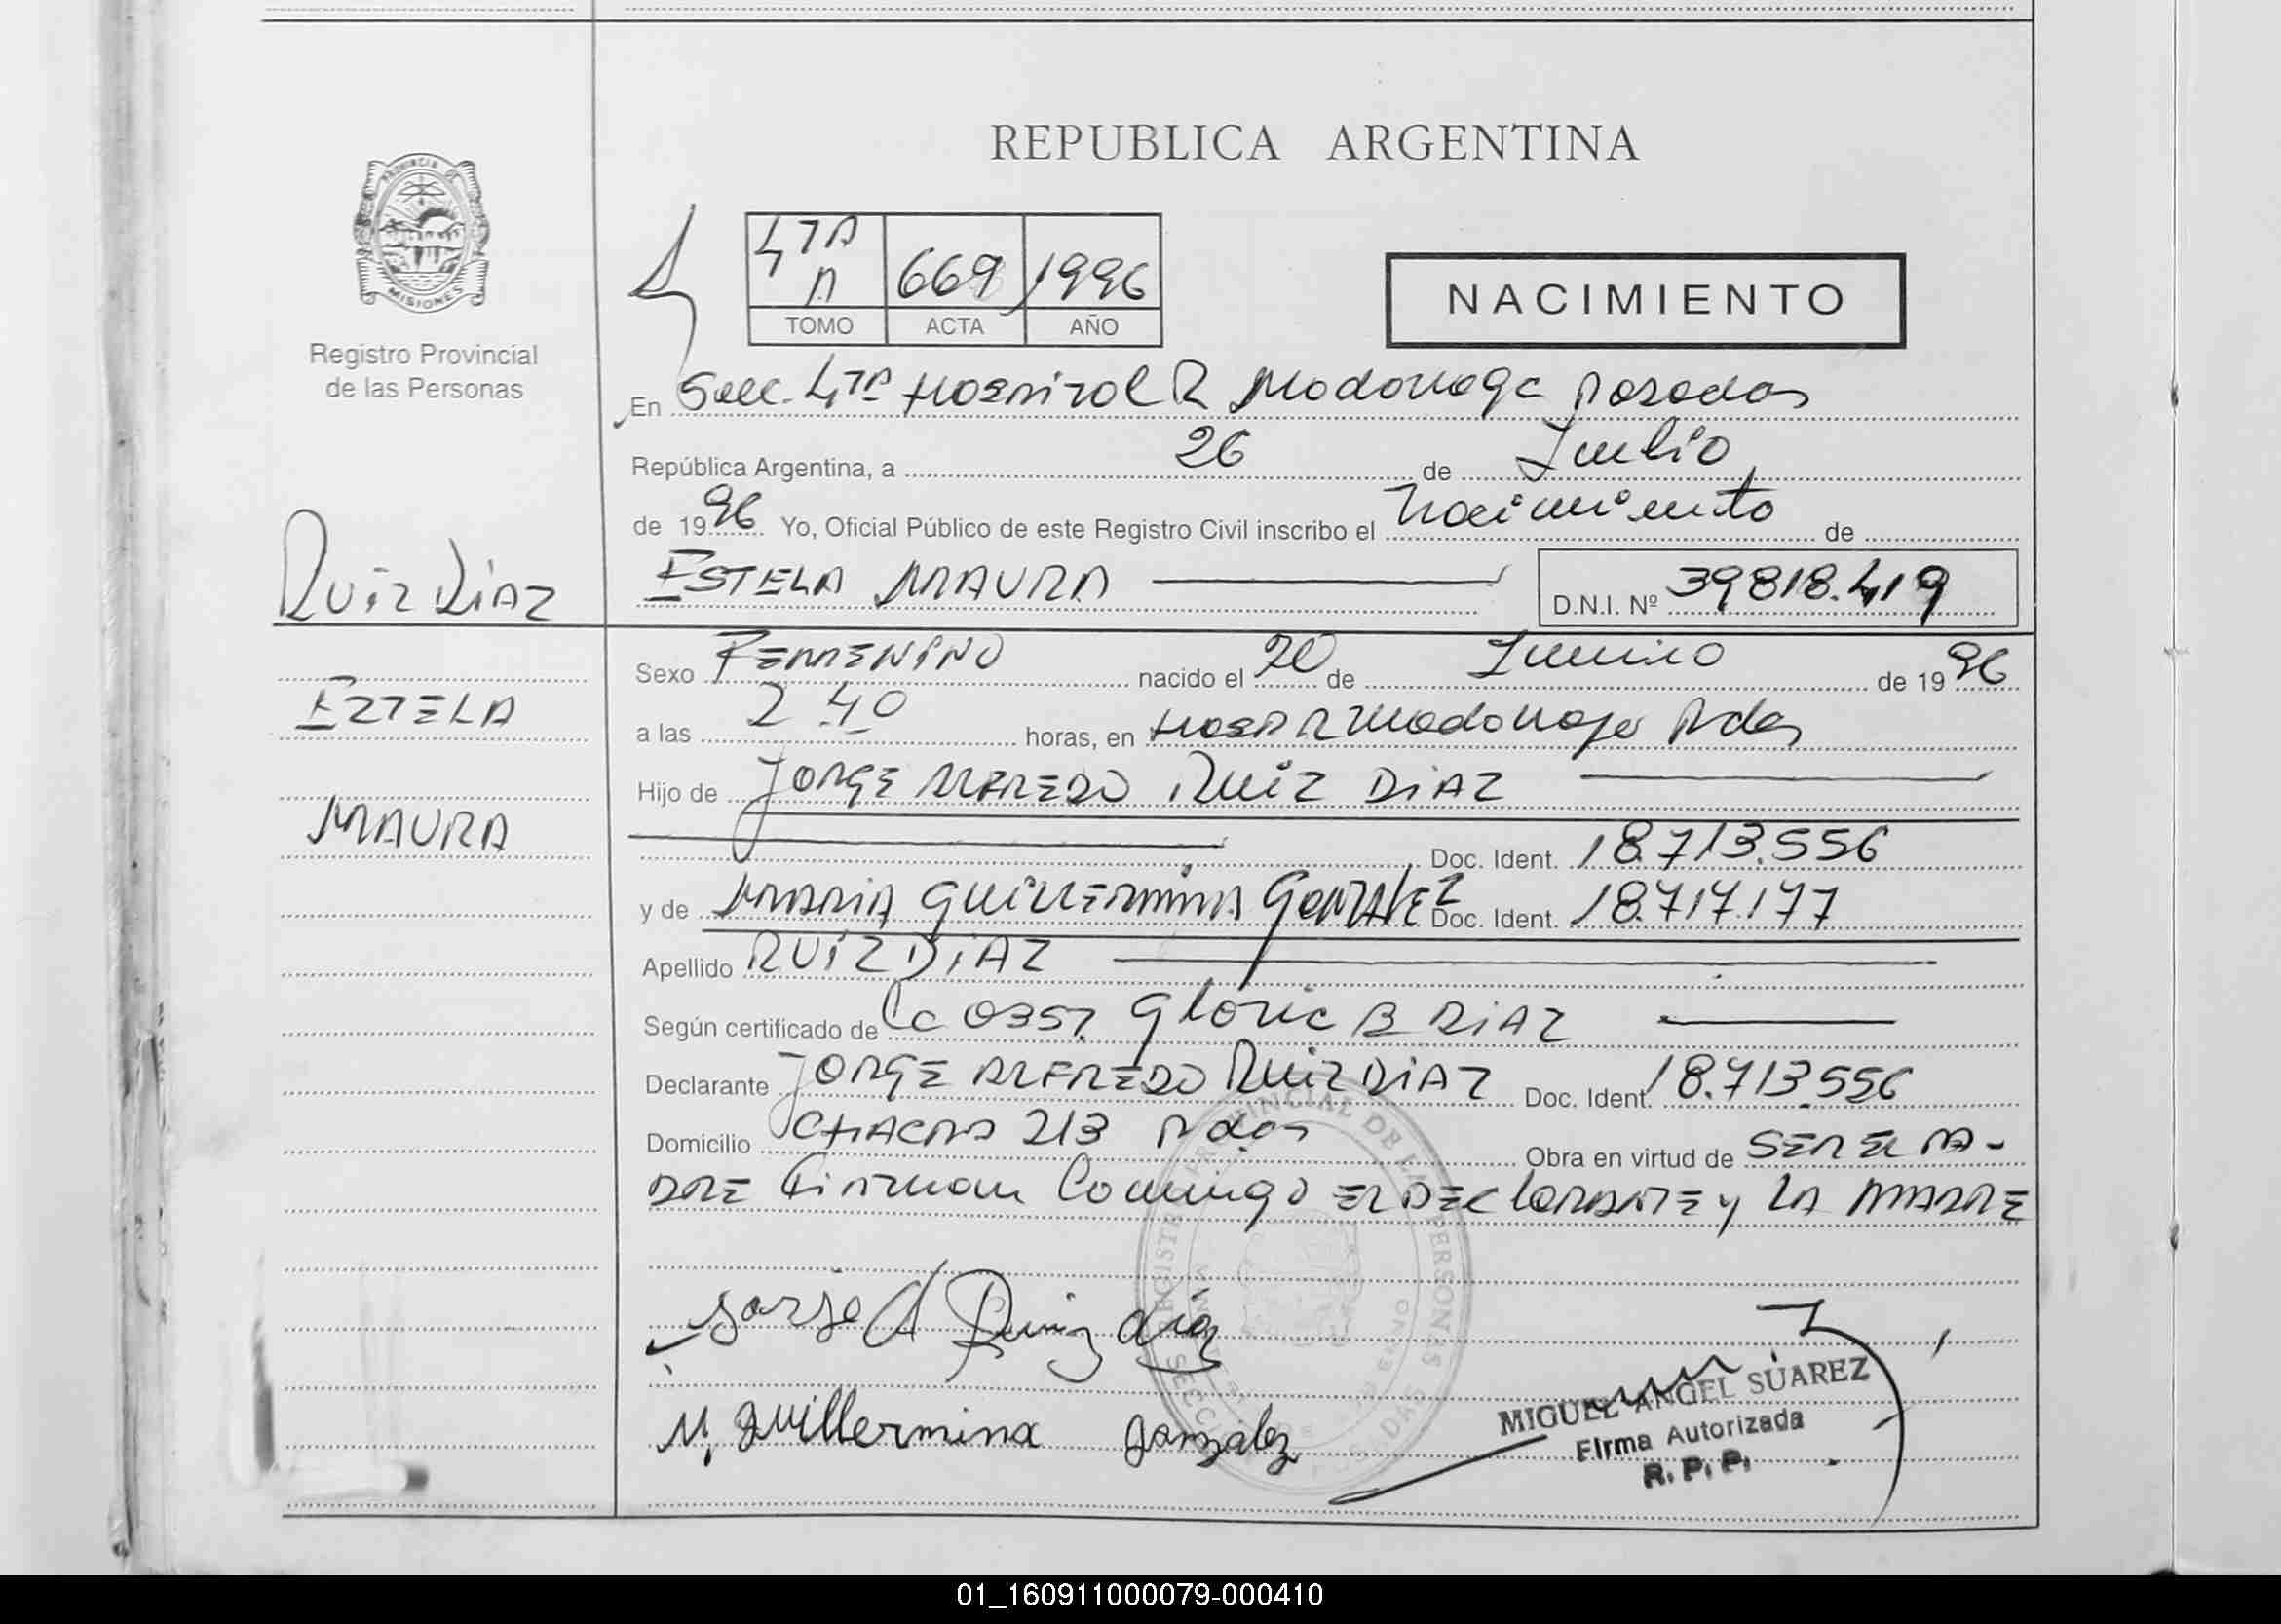 REPUBLICA ARGENTINA
PROVINCIA DE
MISIONES
Registro Provincial
de las Personas
4TA
A 669 1996
TOMO ACTA AÑO
NACIMIENTO
En Secc. 4TA Hospital R Madariaga Posadas
República Argentina, a 26 de Julio
de 1996 Yo, Oficial Público de este Registro Civil inscribo el Nacimiento de
RUIZ DIAZ
ESTELA MAURA
D.N.I. Nº 39818.419
ESTELA
MAURA
Sexo FEMENINO nacido el 20 de Junio de 1996
a las 2 40 horas, en Hosp R Madariaga Pdas
Hijo de JORGE ALFREDO RUIZ DIAZ
Doc. Ident. 18.713.556
y de MARIA GUILLERMINA GONZALEZ Doc. Ident. 18.717.177
Apellido RUIZ DIAZ
Según certificado de 0357 Gloria B DIAZ
Declarante JORGE ALFREDO RUIZ DIAZ Doc. Ident. 18.713.556
Domicilio CHACRA 213 Pdas Obra en virtud de SER EL PA-
DRE Firman Conmigo EL DECLARANTE y LA MADRE
Jorge A Ruiz diaz
M. Guillermina Gonzalez
MIGUEL ANGEL SUAREZ
Firma Autorizada
R. P. P.
REGISTRO PROVINCIAL DE LAS PERSONAS
01_160911000079-000410